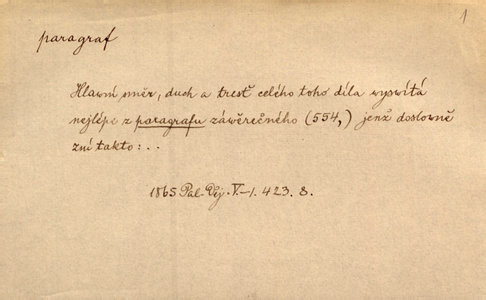 1
paragraf
Hlavní směr, duch a tresť celého toho díla wyswítá
nejlépe z paragrafu záwěrečného (554,) jenž doslowně
zní takto: . .
1865 Pal. Děj. V.–1. 423. 8.